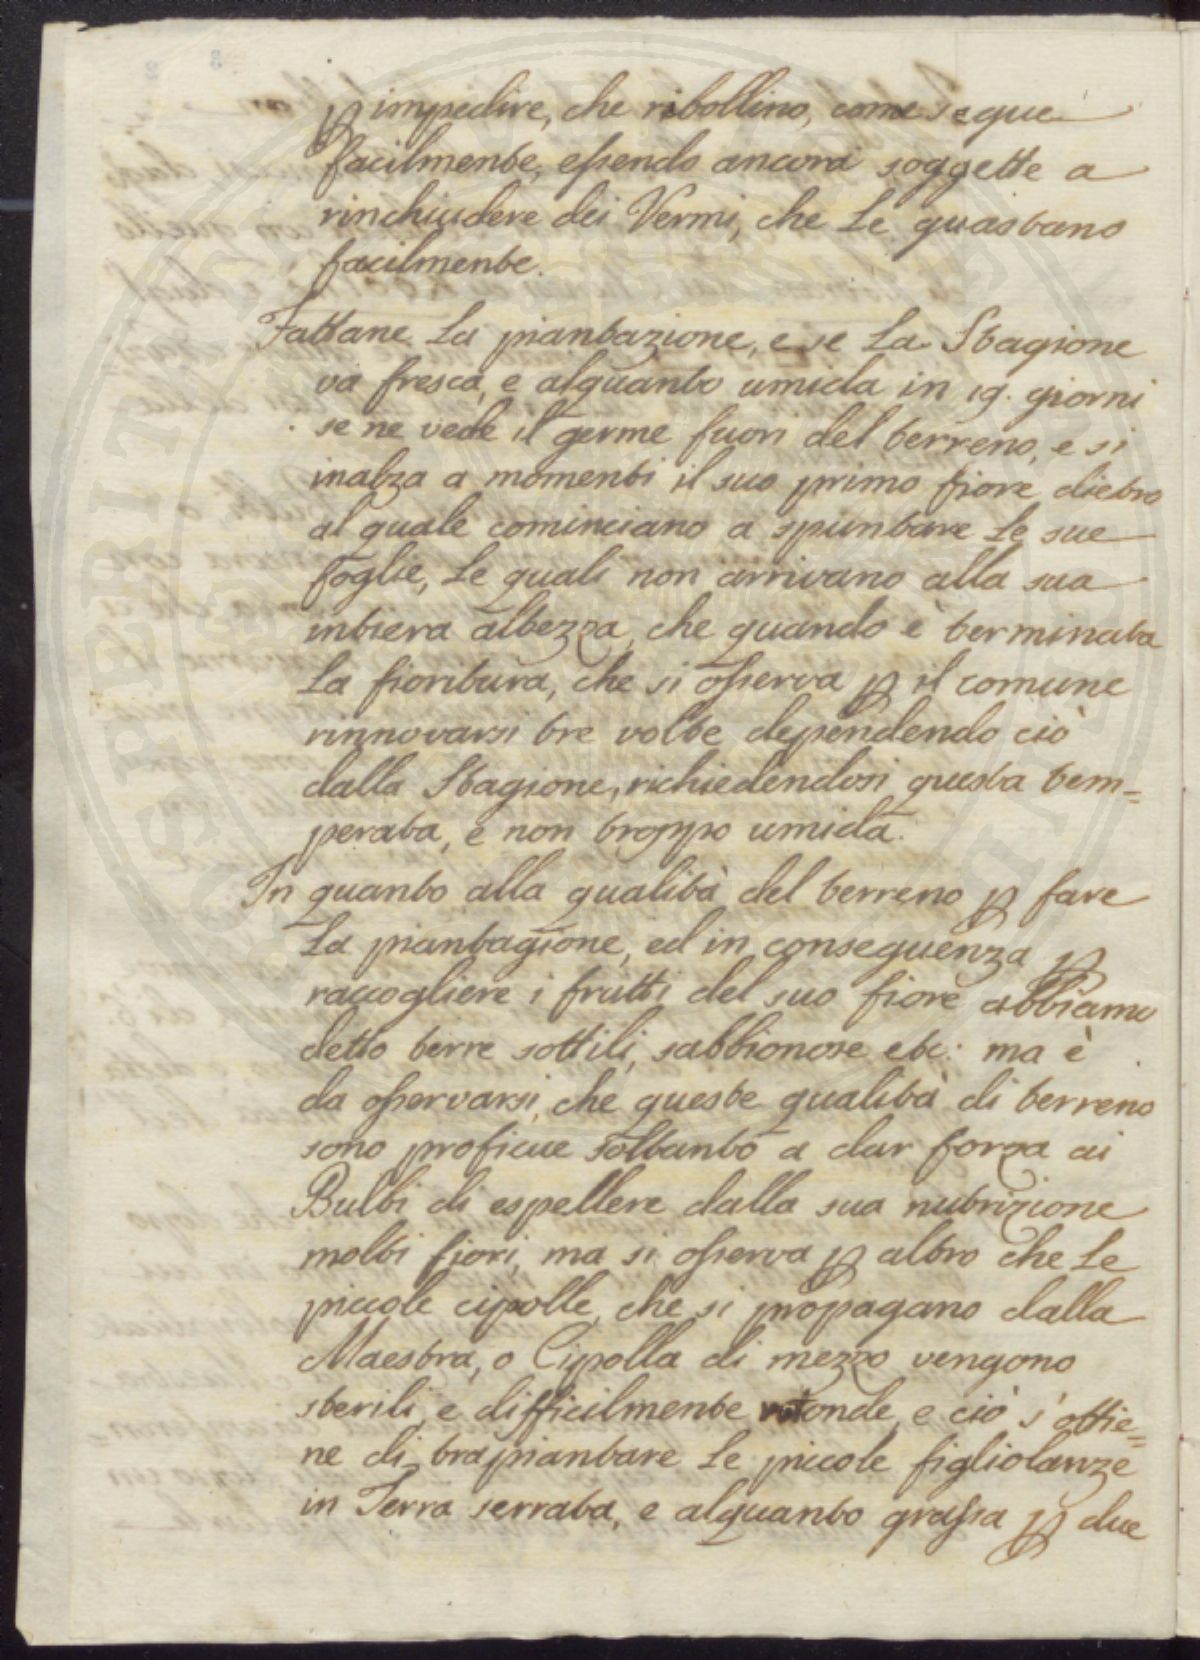 ꝑ impedire, che ribollino, come segue
facilmente, essendo ancora soggette a
rinchiudere dei Vermi, che le guastano
facilmente.
Fattane la piantazione, e se la Stagione
va fresca, e alquanto umida in 19. giorni
se ne vede il germe fuori del terreno, e si
inalza a momenti il suo primo fiore dietro
al quale cominciano a spuntare le sue
foglie, le quali non arrivano alla sua
intiera altezza, che quando è terminata
la fioritura, che si osserva ꝑ il comune
rinnovarsi tre volte dependendo ciò
dalla Stagione, richiedendosi questa tem=
perata, e non troppo umida.
In quanto alla qualità del terreno ꝑ fare
la piantagione, ed in conseguenza ꝑ
raccogliere i frutti del suo fiore abbiamo
detto terre sottili, sabbionose etc: ma è
da osservarsi, che queste qualità di terreno
sono proficue soltanto a dar forza ai
Bulbi di espellere dalla sua nutrizione
molti fiori, ma si osserva ꝑ altro che le
piccole cipolle, che si propagano dalla
Maestra, o Cipolla di mezzo vengono
sterili, e difficilmente rotonde, e ciò s'ottie=
ne di trapiantare le piccole figliolanze
in Terra serrata, e alquanto grassa ꝑ due